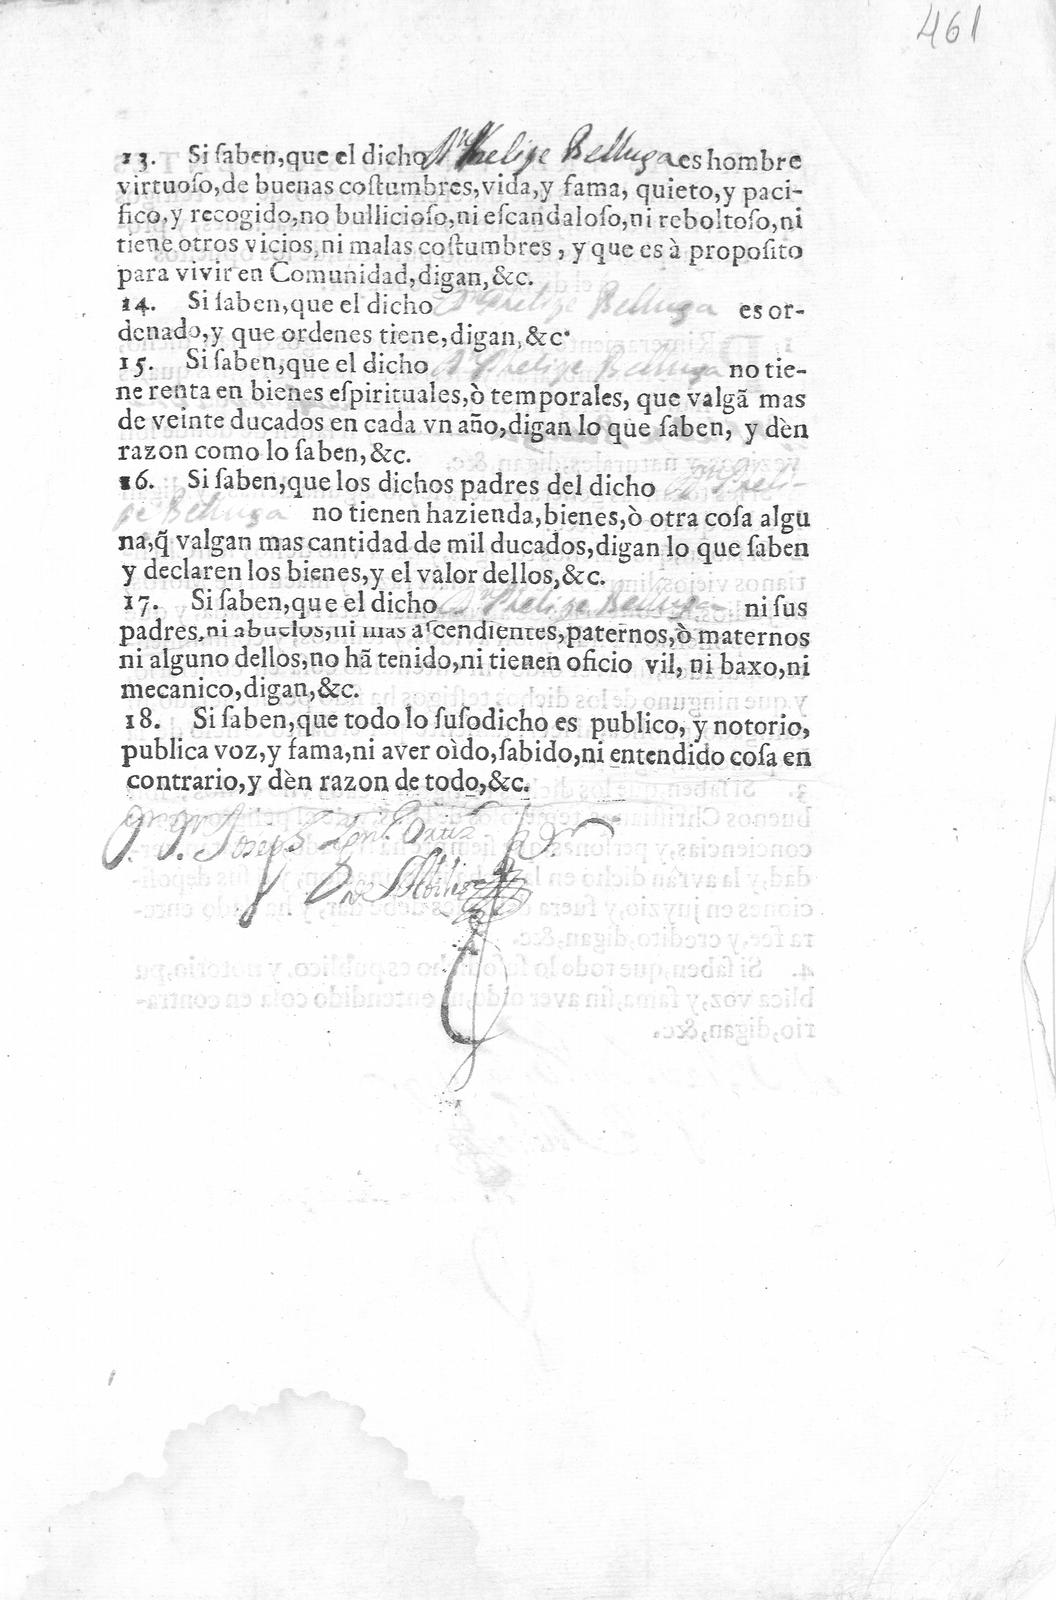 461
13. Si ſaben,que el dicho Dn Phelipe Belluga es hombre
virtuoſo,de buenas coſtumbres,vida,y fama, quieto,y paci-
fico,y recogido,no bullicioſo,ni eſcandaloſo,ni reboltoſo,ni
tiene otros vicios,ni malas coſtumbres, y que es à propoſito
para vivir en Comunidad,digan,&c.
14. Si ſaben,que el dicho Dn Phelipe Belluga es or-
denado,y que ordenes tiene,digan,&c.
15. Si ſaben,que el dicho Dn Phelipe Belluga no tie-
ne renta en bienes eſpirituales,ò temporales, que valgã mas
de veinte ducados en cada vn año,digan lo que ſaben, y dèn
razon como lo ſaben,&c.
16. Si ſaben,que los dichos padres del dicho Dn Pheli-
pe Belluga no tienen hazienda,bienes,ò otra coſa algu
na,q̃ valgan mas cantidad de mil ducados,digan lo que ſaben
y declaren los bienes,y el valor dellos,&c.
17. Si ſaben,que el dicho Dn Phelipe Belluga ni ſus
padres,ni abuelos,ni mas aſcendientes,paternos,ò maternos
ni alguno dellos,no hã tenido,ni tienen oficio vil, ni baxo,ni
mecanico,digan,&c.
18. Si ſaben,que todo lo ſuſodicho es publico, y notorio,
publica voz,y fama,ni aver oìdo,ſabido,ni entendido coſa en
contrario,y dèn razon de todo,&c.
Joseph Ortiz